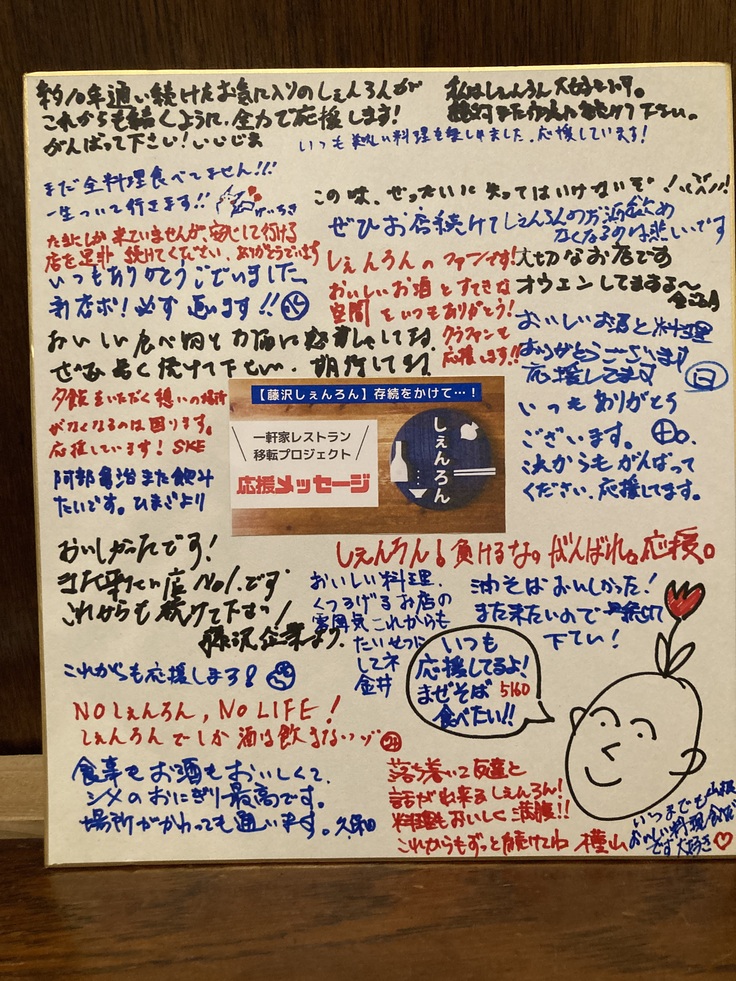 約10年通い続けたお気に入りのしぇんろんが
これからも続くように、全力で応援します!
がんばって下さい!いいじま
私はしぇんろん大好きです。
絶対また行くんで続けて下さい。
いつも美味しい料理を楽しみました。応援しています!
まだ全料理食べてません!!!
一生ついて行きます!!
この味、ぜったいに失ってはいけないぞ!
ぜひお店続けてしぇんろんのお酒飲め
なくなるのは悲しいです
たまにしか来ていませんが、安心して行ける
店を是非続けてください。ありがとうございます
いつもありがとうございました。
新店ポ!必ず通います!!
しぇんろんのファンです!
おいしいお酒とすてきな
空間をいつもありがとう!
クラファンも
応援します!!
大切なお店です
オウエンしてますよ~
おいしい食べ物とお酒に感謝してます。
ぜひ長く続けて下さい。期待してます
おいしいお酒と料理
ありがとうございます
応援してます
夕飯をいただく憩いの場所
がなくなるのは困ります。
応援しています! SKE
いつもありがとう
ございます。
これからもがんばって
ください、応援してます。
【藤沢しぇんろん】存続をかけて…!
一軒家レストラン
移転プロジェクト
応援メッセージ
しぇんろん
阿部亀治また飲み
たいです。ひまざより
おいしかったです!
また来たい店No1.です
これからも続けて下さい!
藤沢企業より
しぇんろん!負けるな。がんばれ。応援。
おいしい料理、
くつろげるお店の
雰囲気これからも
たいせつに
してネ
金井
油そばおいしかった!
また来たいので是非続けて
下さい!
いつも
応援してるよ!
まぜそば 5160
食べたい!!
これからも応援しまう!
NOしぇんろん, NO LIFE!
しぇんろんでしか酒は飲まないッゾ
食事もお酒もおいしくて、
シメのおにぎり最高です。
場所がかわっても通います。久和
落ち着いて友達と
話が出来るしぇんろん!
料理もおいしく満腹!!
これからもずっと続けてね 樺山
いつまでも山根
おいしい料理
です 大好き♡